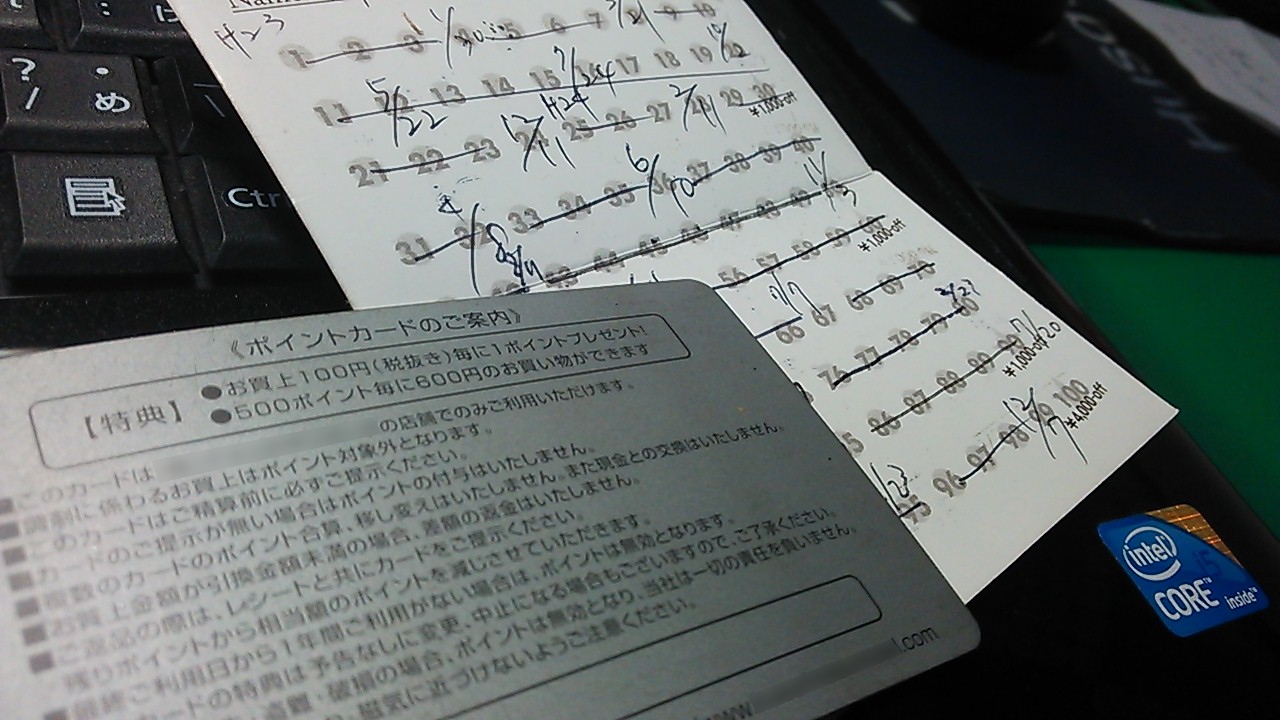 H23
1 2 3 5 6 7 9 10
11 13 14 15 17 18 19
5/22
7/24
H24
21 22 23 25 26 27 29 30
12/11
2/11
¥1,000-off
31 33 34 35 37 38 39 40
6/10
11/3
56 57 58 59
¥1,000-off
7/7
66 67 68 69 70
76 77 78 79 80
86 87 88 89 90
¥1,000-off
7/20
95 96 97 98 99 100
12/7
¥4,000-off
?
/
・
め
Ctr
《ポイントカードのご案内》
【特典】
●お買上100円(税抜き)毎に1ポイントプレゼント!
●500ポイント毎に600円のお買い物ができます
■このカードは の店舗でのみご利用いただけます。
■調剤に係わるお買上はポイント対象外となります。
■このカードはご精算前に必ずご提示ください。
■カードのご提示が無い場合はポイントの付与はいたしません。
■複数のカードのポイント合算、移し変えはいたしません。また現金との交換はいたしません。
■お買上金額が引換金額未満の場合、差額の返金はいたしません。
■ご返品の際は、レシートと共にカードをご提示ください。
残りポイントから相当額のポイントを減じさせていただきます。
■最終ご利用日から1年間ご利用がない場合は、ポイントは無効となります。
カードの特典は予告なしに変更、中止になる場合もございますので、ご了承ください。
盗難・破損の場合、ポイントは無効となり、当社は一切の責任を負いません。
磁気に近づけないようご注意ください。
.com
intel
CORE™ i5
inside™